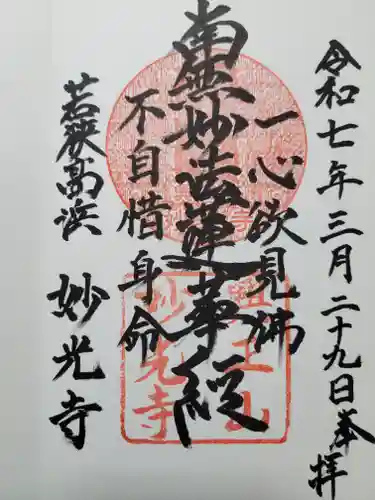 令和七年三月二十九日奉拝
一心欲見佛
南無妙法蓮華經
不自惜身命
若狹高浜
妙光寺
妙光寺